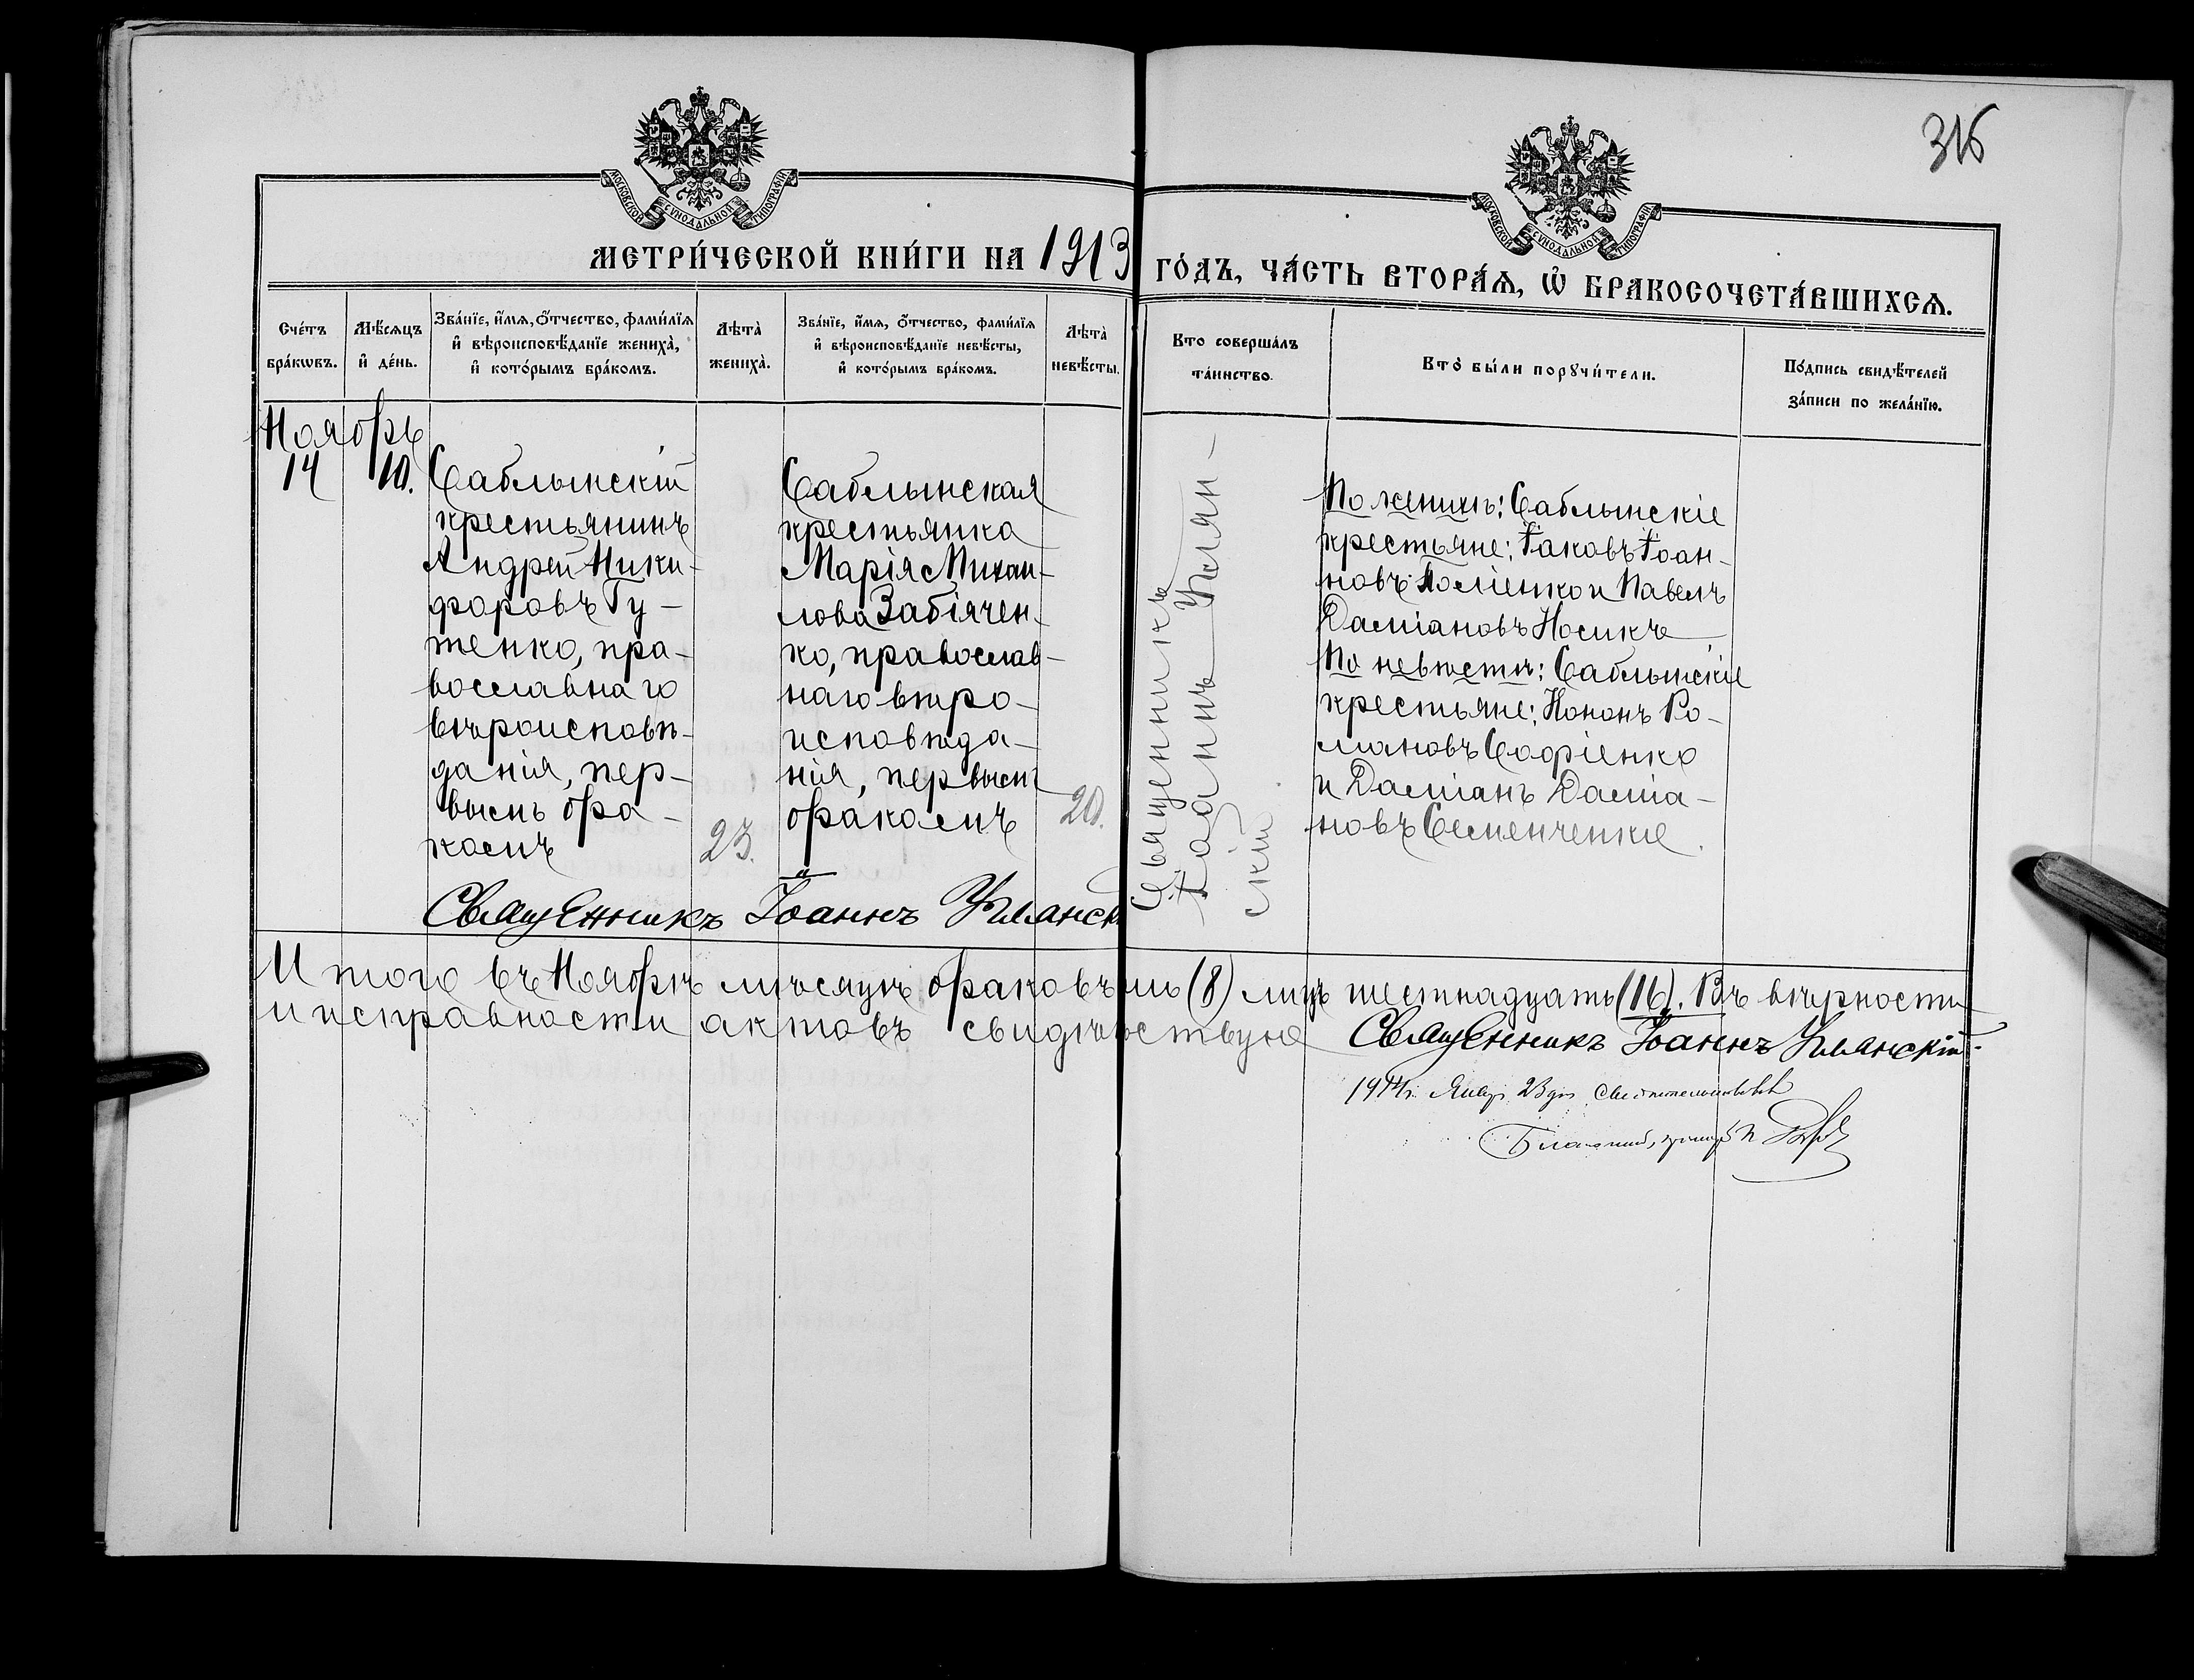 316
МОСКОВСКОЙ СѴНОДАЛЬНОЙ ТИПОГРАФІИ
МОСКОВСКОЙ СѴНОДАЛЬНОЙ ТИПОГРАФІИ
МЕТРИ́ЧЕСКОЙ КНИ́ГИ НА 1913 ГО́ДЪ, ЧА́СТЬ ВТОРА́Ѧ, Ѽ БРАКОСОЧЕТА́ВШИХСѦ.
Сче́тъ
бра́кѡвъ.
Мѣ́сяцъ
и҆ де́нь.
Зва́нїе, и҆́мя, ѻ҆́тчество, фами́лїя
и҆ вѣроисповѣ́данїе жениха̀,
и҆ кото́рымъ бра́комъ.
Лѣта̀
жениха̀.
Зва́нїе, и҆́мя, ѻ҆́тчество, фами́лїя
и҆ вѣроисповѣ́данїе невѣ́сты,
и҆ кото́рымъ бра́комъ.
Лѣта̀
невѣ́сты.
Кто соверша́лъ
та́инство.
Кто̀ бы́ли порꙋчи́тели.
По́дпись свидѣ́телей
за́писи по жела́нїю.
Ноябрь
14
10.
Саблынскій
крестьянинъ
Андрей Ники-
форовъ Гу-
тенко, пра-
вославнаго
вѣроисповѣ-
данія, пер-
вымъ бра-
комъ
23.
Саблынская
крестьянка
Марія Михаи-
лова Забіячен-
ко, православ-
наго вѣро-
исповѣда-
нія, первымъ
бракомъ
20.
Священникъ
Іоаннъ Улян-
скій
По женихѣ: Саблынскіе
крестьяне: Іаковъ Іоан-
новъ и Павелъ
Даміановъ Носикъ
По невѣстѣ: Саблынскіе
крестьяне: Кононъ Ро-
мановъ Софіенко
и Даміанъ Даміа-
новъ Семенченко.
Священникъ Іоаннъ Улянск
Итого въ Ноябрѣ мѣсяцѣ браковъ (8) лицъ шестнадцать (16). Въ вѣрности
и исправности актовъ свидѣтельствую Священникъ Іоаннъ Улянскій
1914 г. Январ. 23 дня